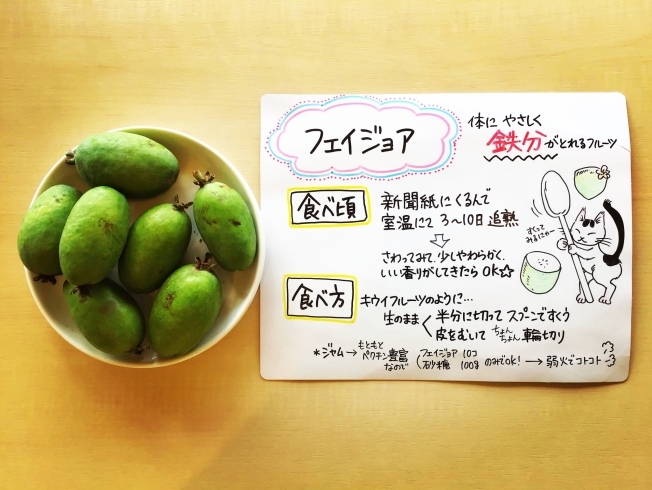 フェイジョア
体に やさしく
鉄分がとれるフルーツ
食べ頃
新聞紙にくるんで
室温にて 3〜10日 追熟
⇩
さわってみて、少しやわらかく、
いい香りがしてきたら OK☆
すくって
みるにゃー
食べ方
キウイフルーツのように…
生のまま
半分に切って スプーンですくう
皮をむいて ちょんちょん 輪切り
*ジャム→ もともと
ペクチン豊富
なので
(フェイジョア 10コ
砂糖 100g のみでOK! → 弱火でコトコト